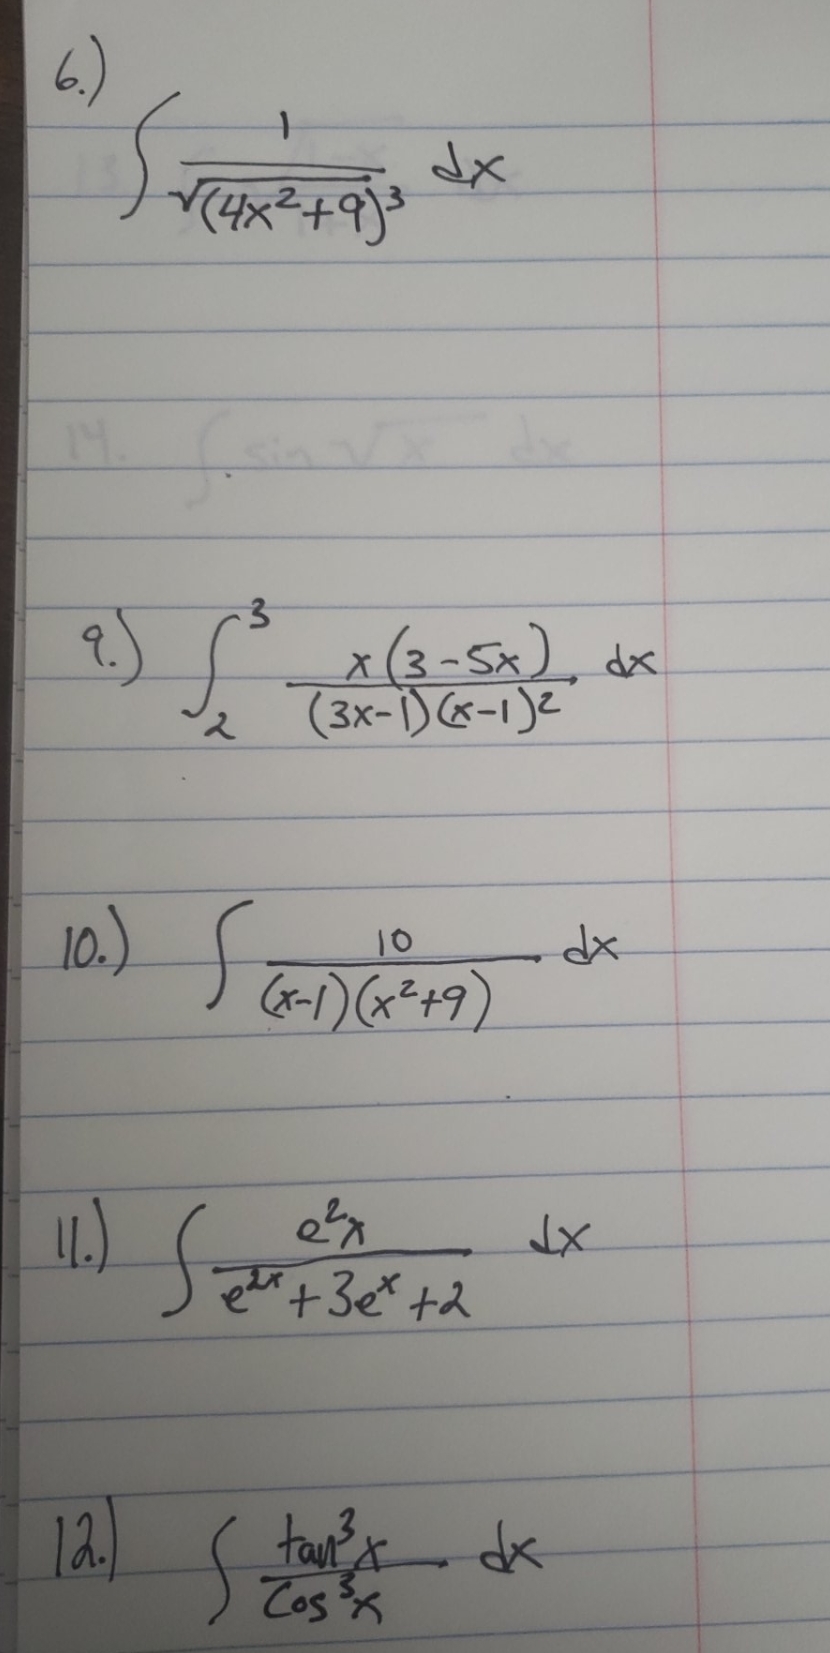 6.)
∫ 1/√(4x²+9)³ dx
14. ∫ sin √x dx
9.) ∫₂³ x(3-5x)/(3x-1)(x-1)² dx
10.) ∫ 10/(x-1)(x²+9) dx
11.) ∫ e²x/e²ˣ+3eˣ+2 dx
12.) ∫ tan³x/cos³x dx